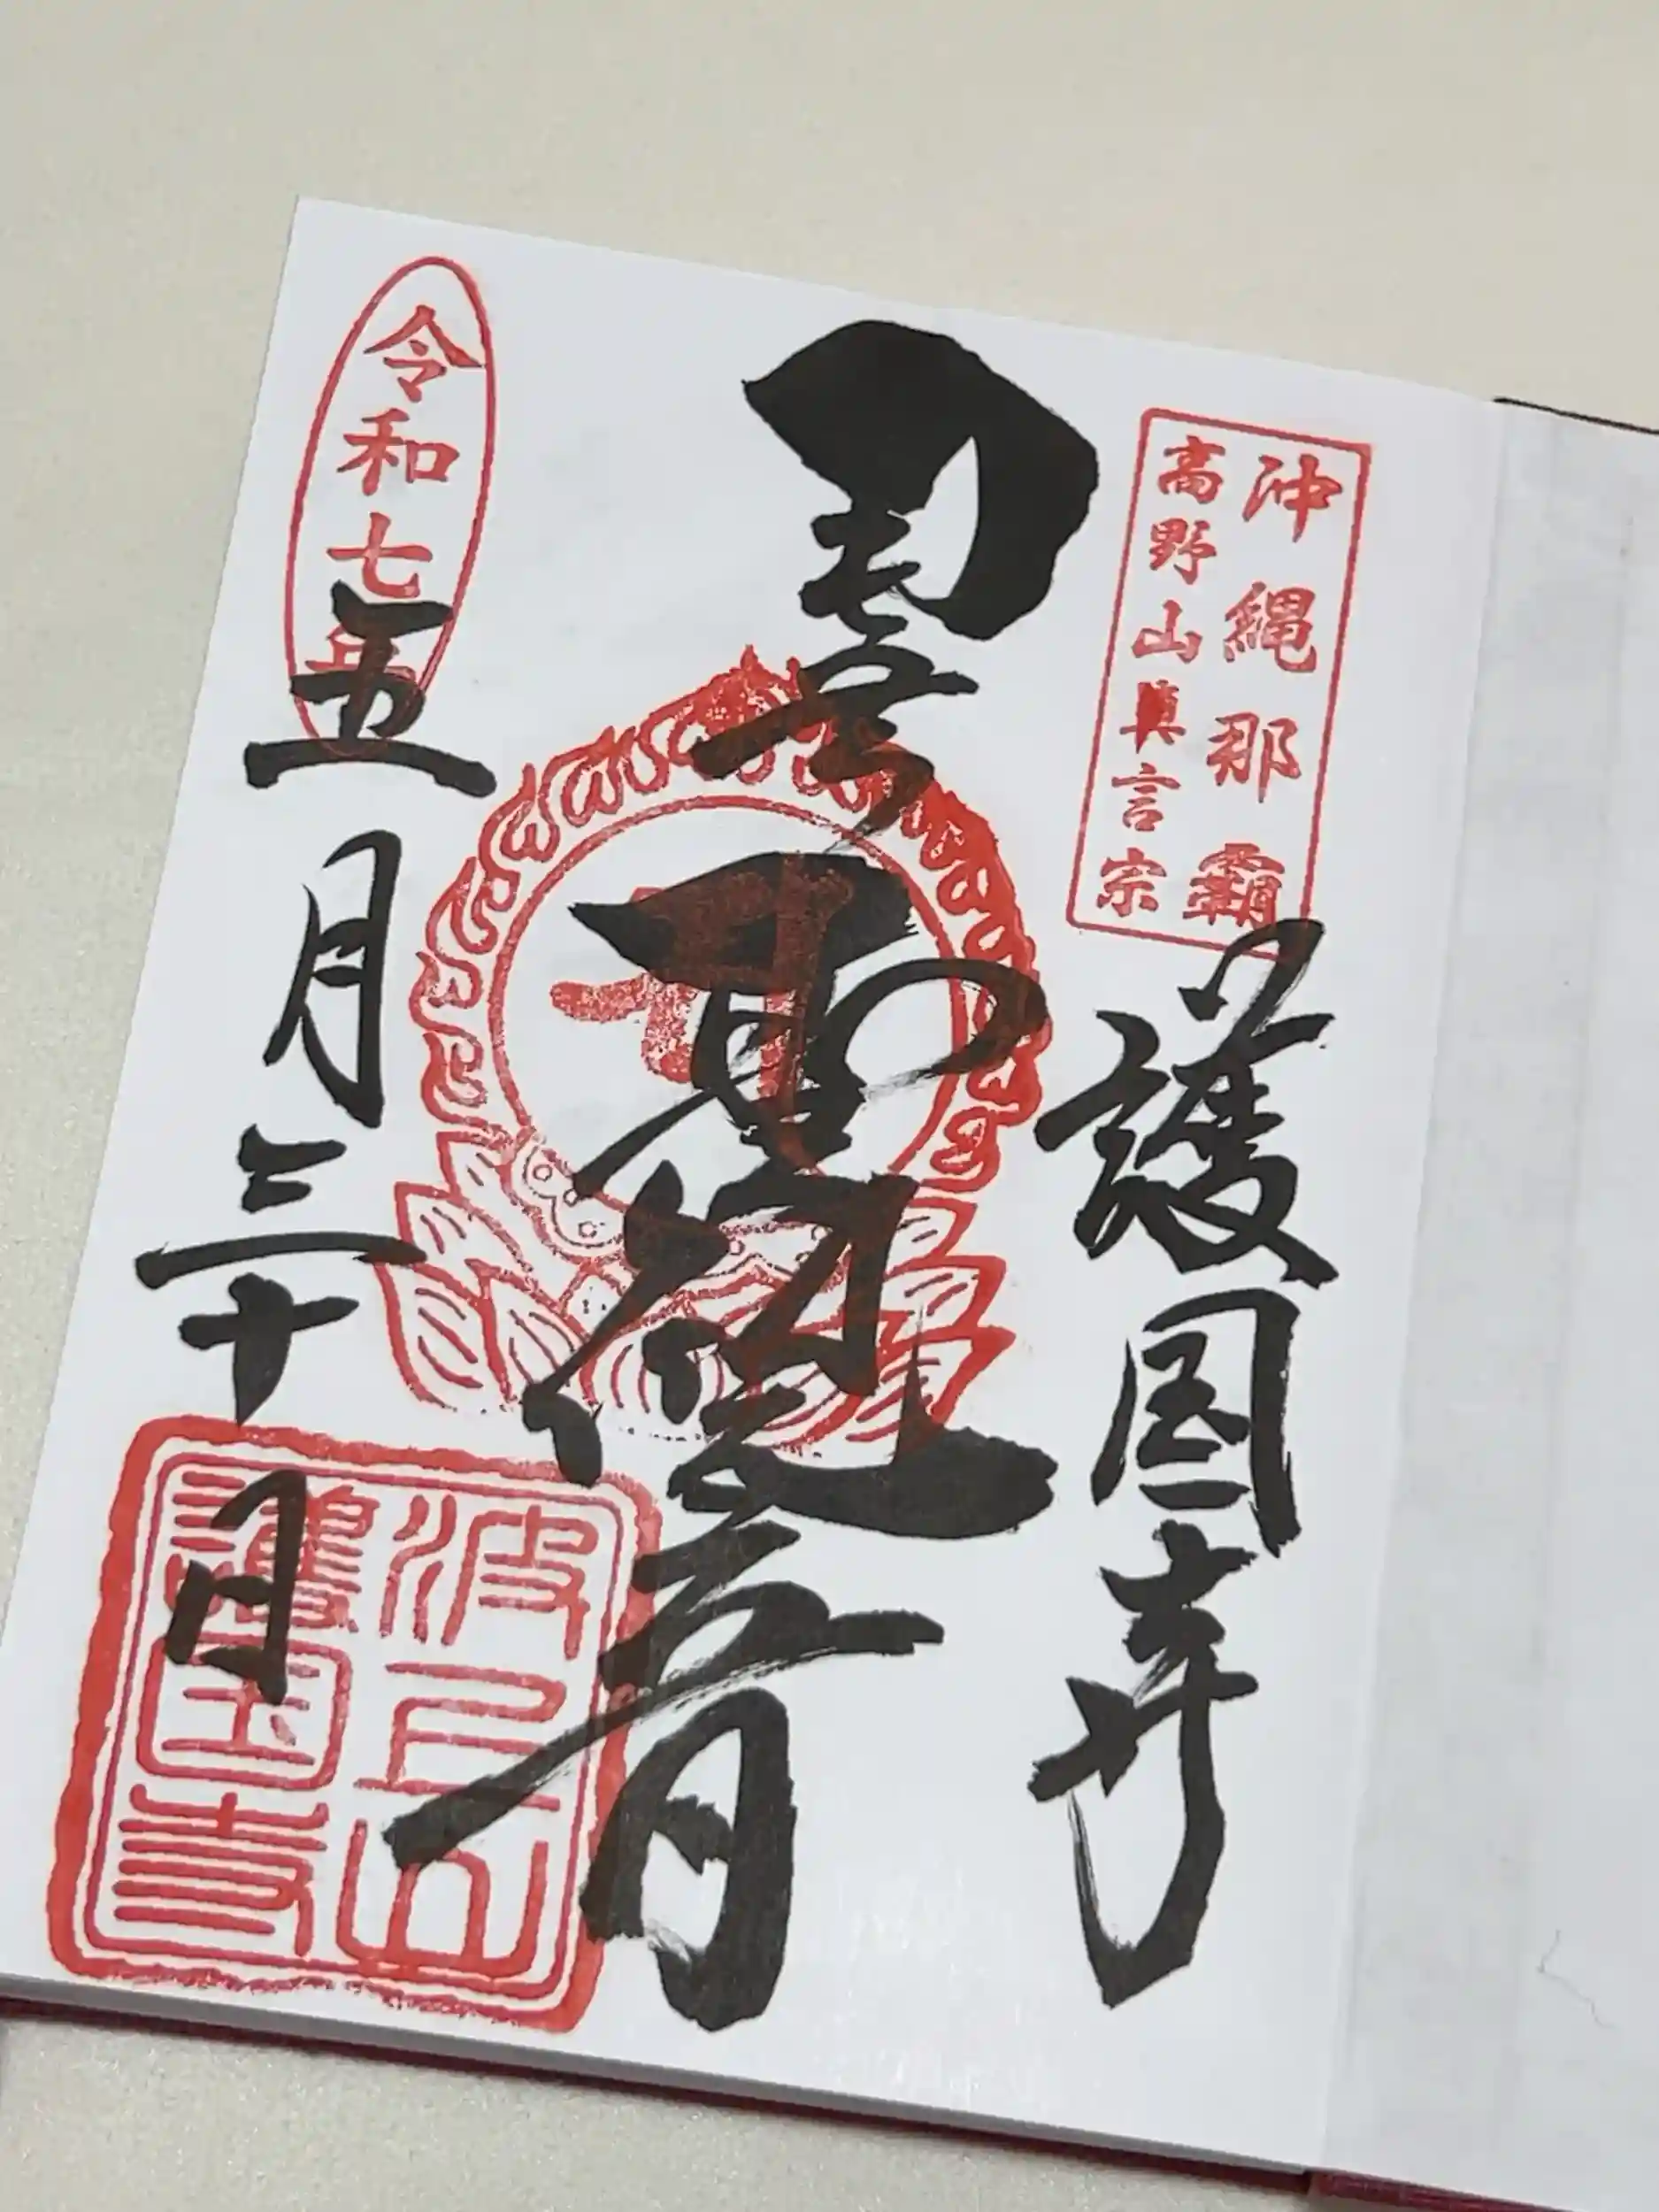 沖縄那覇
高野山真言宗
護国寺
聖観音
令和七年
五月三十日
波上山
護国寺